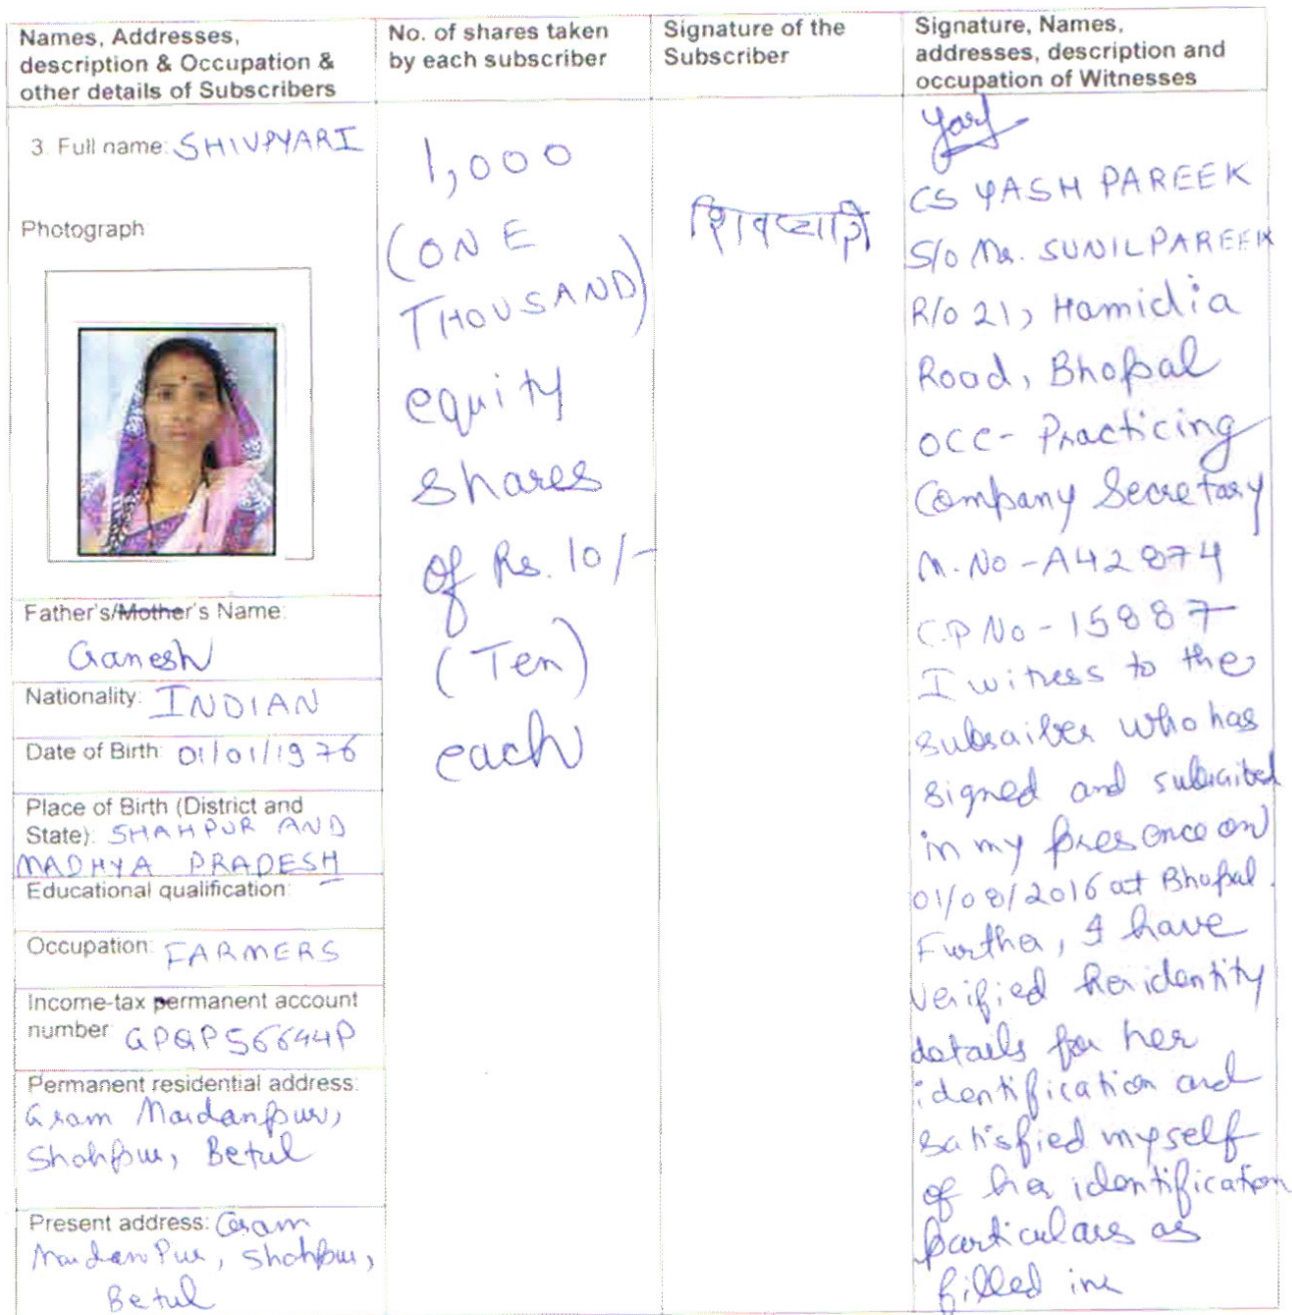 Names, Addresses,
description & Occupation &
other details of Subscribers
No. of shares taken
by each subscriber
Signature of the
Subscriber
Signature, Names,
addresses, description and
occupation of Witnesses
3. Full name: SHIVPYARI
Photograph
Father's/Mother's Name:
Ganesh
Nationality: INDIAN
Date of Birth: 01/01/1976
Place of Birth (District and
State): SHAHPUR AND
MADHYA PRADESH
Educational qualification: -
Occupation: FARMERS
Income-tax permanent account
number GPQPS6644P
Permanent residential address:
Gram Maidanpur,
Shahpur, Betul
Present address: Gram
Maidanpur, Shahpur,
Betul
1,000
(ONE
THOUSAND)
equity
shares
of Rs. 10/-
(Ten)
each
शिवप्यारी
Yash
CS YASH PAREEK
S/o Mr. SUNIL PAREEK
R/o 21, Hamidia
Road, Bhopal
OCC- Practicing
Company Secretary
M.No-A42874
C.P No-15887
I witness to the
subscriber who has
signed and subscribed
in my presence on
01/08/2016 at Bhopal.
Further, I have
verified her identity
details for her
identification and
satisfied myself
of her identification
particulars as
filled in